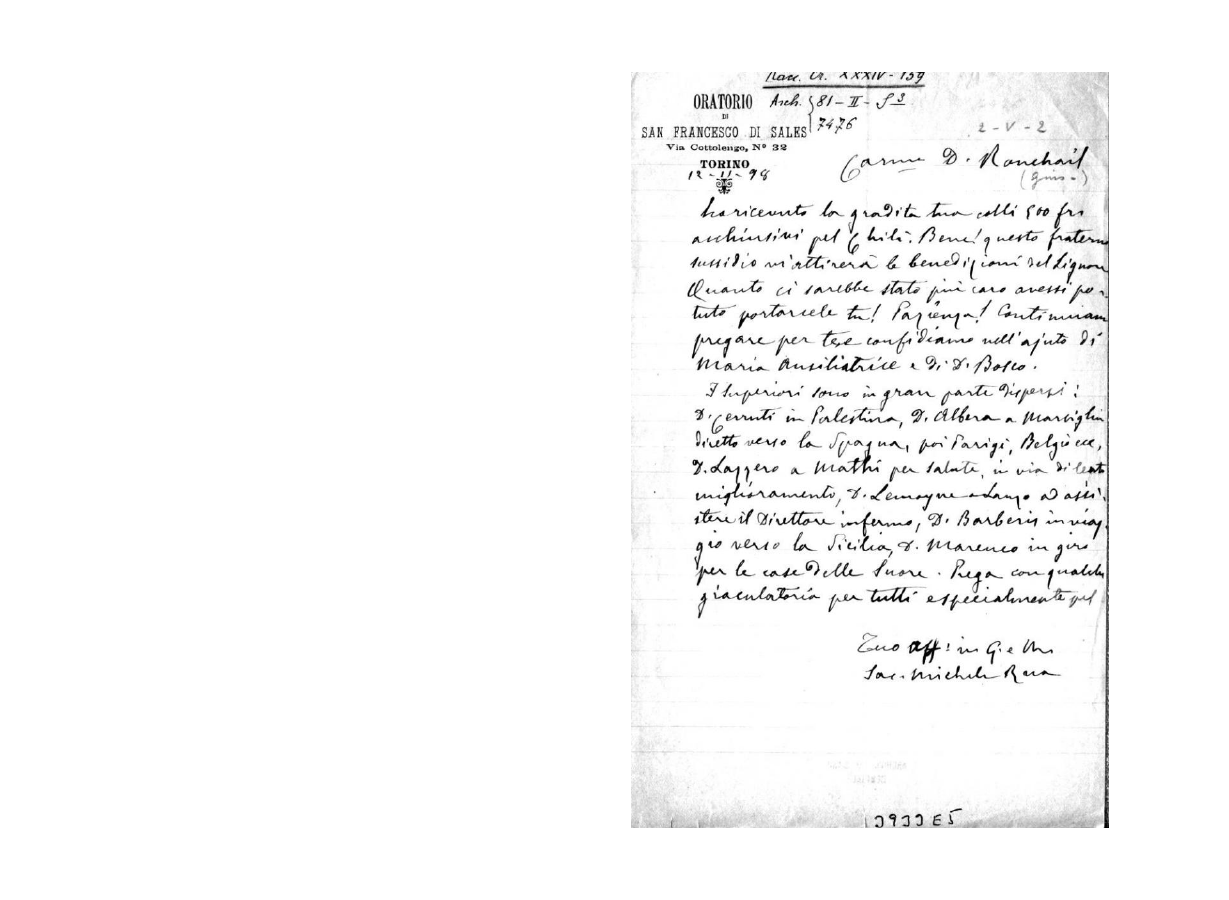 Racc. Or. XXXIV - 159
ORATORIO
DI
SAN FRANCESCO DI SALES
Via Cottolengo, N° 32
TORINO
Arch. 81 - II - S 3
7476
2 - V - 2
12 - 11 - 98
Carmo D. Ronchail
(Gius.)
ho ricevuto la gradita tua colli 500 fri
acchiusivi pel Chilì. Bene! questo fraterno
sussidio vi attirerà le benedizioni del Signore
Quanto ci sarebbe stato più caro avessi po-
tuto portarcele tu! Pazienza! Continuiam
pregare per te, e confidiamo nell'ajuto di
Maria Ausiliatrice e di D. Bosco.
I Superiori sono in gran parte dispersi:
D. Cerruti in Palestina, D. Albera a Marsiglia
diretto verso la Spagna, poi Parigi, Belgio ecc,
D. Lazzero a Mathi per salute, in via di lento
miglioramento, D. Lemoyne a Lanzo ad assi-
stere il Direttore infermo, D. Barberis in viag-
gio verso la Sicilia, D. Marenco in giro
per le case delle Suore. Prega con qualche
giaculatoria per tutti e specialmente pel
Tuo aff: in G. e M.
Sac. Michele Rua
3933 E5